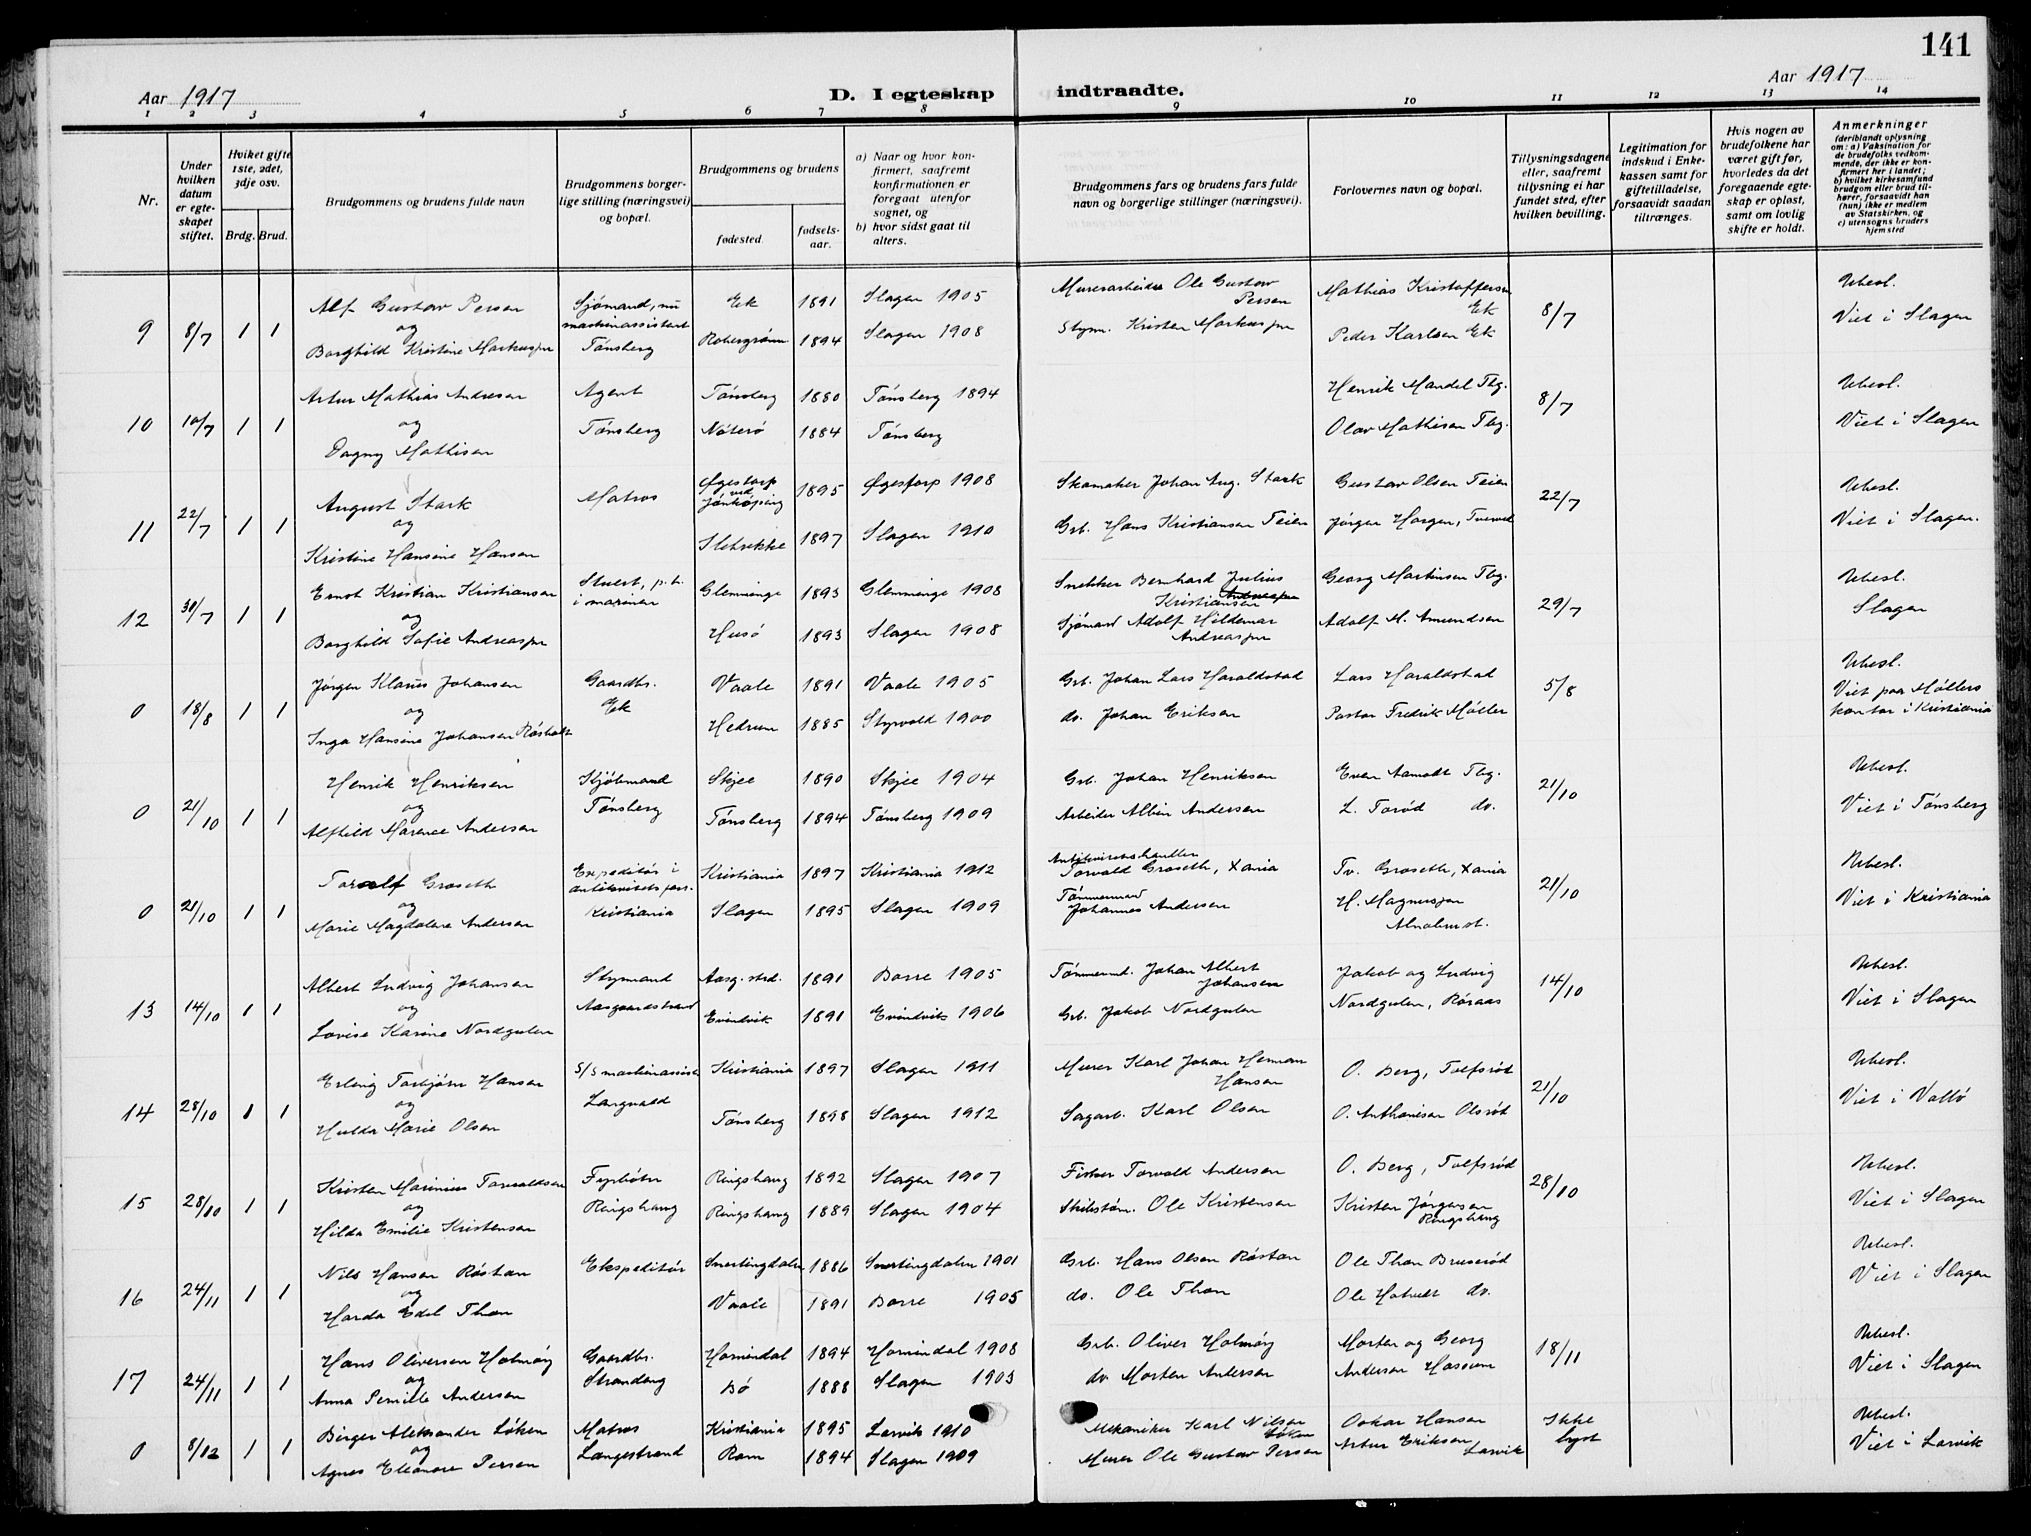 141
Aar 1917
D. I egteskap indtraadte.
Aar 1917
1 2 3 4 5 6 7 8 9 10 11 12 13 14
Nr.
Under hvilken datum er egteskapet stiftet.
Hvilket gifte 1ste, 2det, 3dje osv.
Brdg. Brud.
Brudgommens og brudens fulde navn
Brudgommens borgerlige stilling (næringsvei) og bopæl.
Brudgommens og brudens
fødested.
fødselsaar.
a) Naar og hvor konfirmert, saafremt konfirmationen er foregaat utenfor sognet, og
b) hvor sidst gaat til alters.
Brudgommens fars og brudens fars fulde navn og borgerlige stillinger (næringsvei).
Forlovernes navn og bopæl.
Tillysningsdagene eller, saafremt tillysning ei har fundet sted, efter hvilken bevilling.
Legitimation for indskud i Enkekassen samt for giftetilladelse, forsaavidt saadan tiltrænges.
Hvis nogen av brudefolkene har været gift før, hvorledes da det foregaaende egteskap er opløst, samt om lovlig skifte er holdt.
Anmerkninger
(deriblandt oplysning om: a) Vaksination for de brudefolks vedkommende, der ikke er konfirmert her i landet; b) hvilket kirkesamfund brudgom eller brud tilhører, forsaavidt han (hun) ikke er medlem av Statskirken, og c) utensogns bruders hjemsted
9 8/7 1 1 Alf Gustav Persen Sjømand, nu maskinassistent Ek 1891 Slagen 1905 Murerarbeider Ole Gustav Persen Mathias Kristoffersen Ek 8/7 Ubesl.
og
Borghild Kristine Markussen Tønsberg 1894 Slagen 1908 Styrm. Kristen Markussen Peder Karlsen Ek Viet i Slagen
10 10/7 1 1 Artur Mathias Andresen Agent Tønsberg 1880 Tønsberg 1894 Henrik Mandel Tbg. 8/7 Ubesl.
og
Dagny Mathisen Tønsberg Nøterø 1884 Tønsberg Olav Mathisen Tbg. Viet i Slagen
11 22/7 1 1 August Stark Matros Øgestorp ved Jönköping 1895 Øgestorp 1908 Skomaker Johan Aug. Stark Gustav Olsen Teien 22/7 Ubesl.
og
Kristine Hansine Hansen Sletrekke 1897 Slagen 1910 Grb. Hans Kristiansen Teien Jørgen Horgen, Viet i Slagen.
12 30/7 1 1 Ernst Kristian Kristiansen Stuert, p.t. i marinen Glemminge 1893 Glemminge 1908 Snekker Bernhard Julius Kristiansen Georg Martinsen Tbg. 29/7 Ubesl.
og
Borghild Sofie Andreassen Husø 1893 Slagen 1908 Sjømand Adolf Hildemar Andreassen Adolf M. Amundsen Slagen
0 18/8 1 1 Jørgen Klaus Johansen Gaardbr. Vaale 1891 Vaale 1905 Grb. Johan Lars Haraldstad Lars Haraldstad 5/8 Ubesl.
og
Inga Hansine Johansen Røsholt Ek Hedrum 1885 Styrvold 1900 do. Johan Eriksen Pastor Fredrik Møller Viet paa Møllers kontor i Kristiania
0 21/10 1 1 Henrik Henriksen Kjøbmand Skjee 1890 Skjee 1904 Grb. Johan Henriksen Even Aamodt Tbg. 21/10 Ubesl.
og
Alfhild Marence Andersen Tønsberg Tønsberg 1894 Tønsberg 1909 Arbeider Albin Andersen L. Torød do. Viet i Tønsberg
0 21/10 1 1 Toralf Groseth Expeditør i Kristiania 1897 Kristiania 1912 Antikvitetshandler Torvald Groseth, Xania Tv. Groseth, Xania 21/10 Ubesl.
og
Marie Magdalene Andersen Kristiania Slagen 1895 Slagen 1909 Tømmermand Johannes Andersen H. Magnussen Viet i Kristiania
13 14/10 1 1 Albert Ludvig Johansen Styrmand Aasg.strd. 1891 Borre 1905 Tømmermd. Johan Albert Johansen Jakob og Ludvig 14/10 Ubesl.
og
Lovise Karine Nordgulen Aasgaardstrand Evindvik 1891 Evindvik 1906 Grb. Jakob Nordgulen Nordgulen, Røraas Viet i Slagen
14 28/10 1 1 Erling Torbjørn Hansen S/S maskinassist. Kristiania 1897 Slagen 1911 Murer Karl Johan Herman Hansen O. Berg, Tolfsrød 21/10 Ubesl.
og
Hulda Marie Olsen Langvald Tønsberg 1898 Slagen 1912 Sagarb. Karl Olsen O. Anthonisen Olsrød Viet i Vallø
15 28/10 1 1 Kristen Marinius Torvaldsen Fyrbøter Ringshaug 1892 Slagen 1907 Fisker Torvald Andersen O. Berg, Tolfsrød 28/10 Ubesl.
og
Hilda Emilie Kristensen Ringshaug Ringshaug 1889 Slagen 1904 Skibstøm. Ole Kristensen Kristen Jørgensen Ringshaug Viet i Slagen
16 24/11 1 1 Nils Hansen Røstan Ekspeditør Snertingdalen 1886 Snertingdalen 1901 Grb. Hans Olsen Røstan Ole Thon Bruserød Ubesl.
og
Harda Edel Thon Vaale 1891 Borre 1905 do. Ole Thon Ole Hotvedt do. Viet i Slagen
17 24/11 1 1 Hans Oliversen Holmøy Gaardbr. Hornindal 1894 Hornindal 1908 Grb. Oliver Holmøy Morten og Georg 18/11 Ubesl.
og
Anna Pernille Andersen Strandeng Bø 1888 Slagen 1903 do Morten Andersen Andersen Hasum Viet i Slagen
0 8/12 1 1 Birger Aleksander Løken Matros Kristiania 1895 Larvik 1910 Mekaniker Karl Nilsen Løken Oskar Hansen Ikke lyst Ubesl.
og
Agnes Eleonore Persen Langestrand Rom 1894 Slagen 1909 Murer Ole Gustav Persen Artur Eriksen Larvik Viet i Larvik